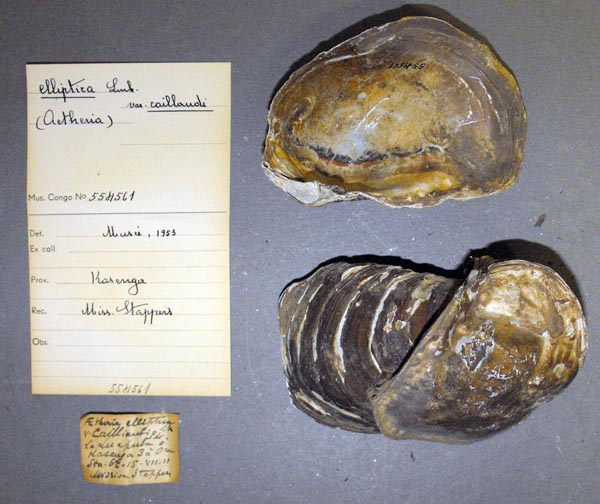 elliptica Lmk.
var. caillaudi
(Aetheria)
Mus. Congo No 554561
Det. Musié, 1953
Ex coll.
Prov. Kasenga
Rec. Miss. Stappers
Obs.
554561
Ætheria elliptica
v. Cailliaudi
Luapula
Kasenga 3 à
Sta. 62-15-VII-11
Mission Stappers